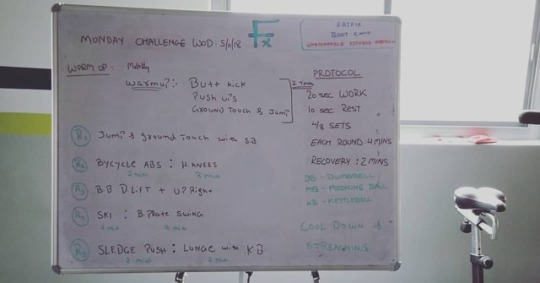 MONDAY CHALLENGE WOD: 5/2/18
Fx
FATFIX
BOOT CAMP
UNSTOPPABLE FITNESS
WARM UP: Mobility
WARMUP:- BUTT KICK
PUSH UPS
GROUND TOUCH & JUMP
PROTOCOL
20 SEC WORK
10 SEC REST
4/8 SETS
EACH ROUND: 4 MINS
RECOVERY: 2 MINS
DB - DUMBBELL
MB - MEDICINE BALL
KB - KETTLEBELL
COOL DOWN &
STREACHING
R1 JUMP & GROUND TOUCH WITH SB
BYCYCLE ABS :
2 min 2 min
BB D LIFT + UPRIGHT
SKI : B PLATE SWING
2 min 2 min
SLEDGE PUSH : LUNGE WITH KB
2 min 2 min